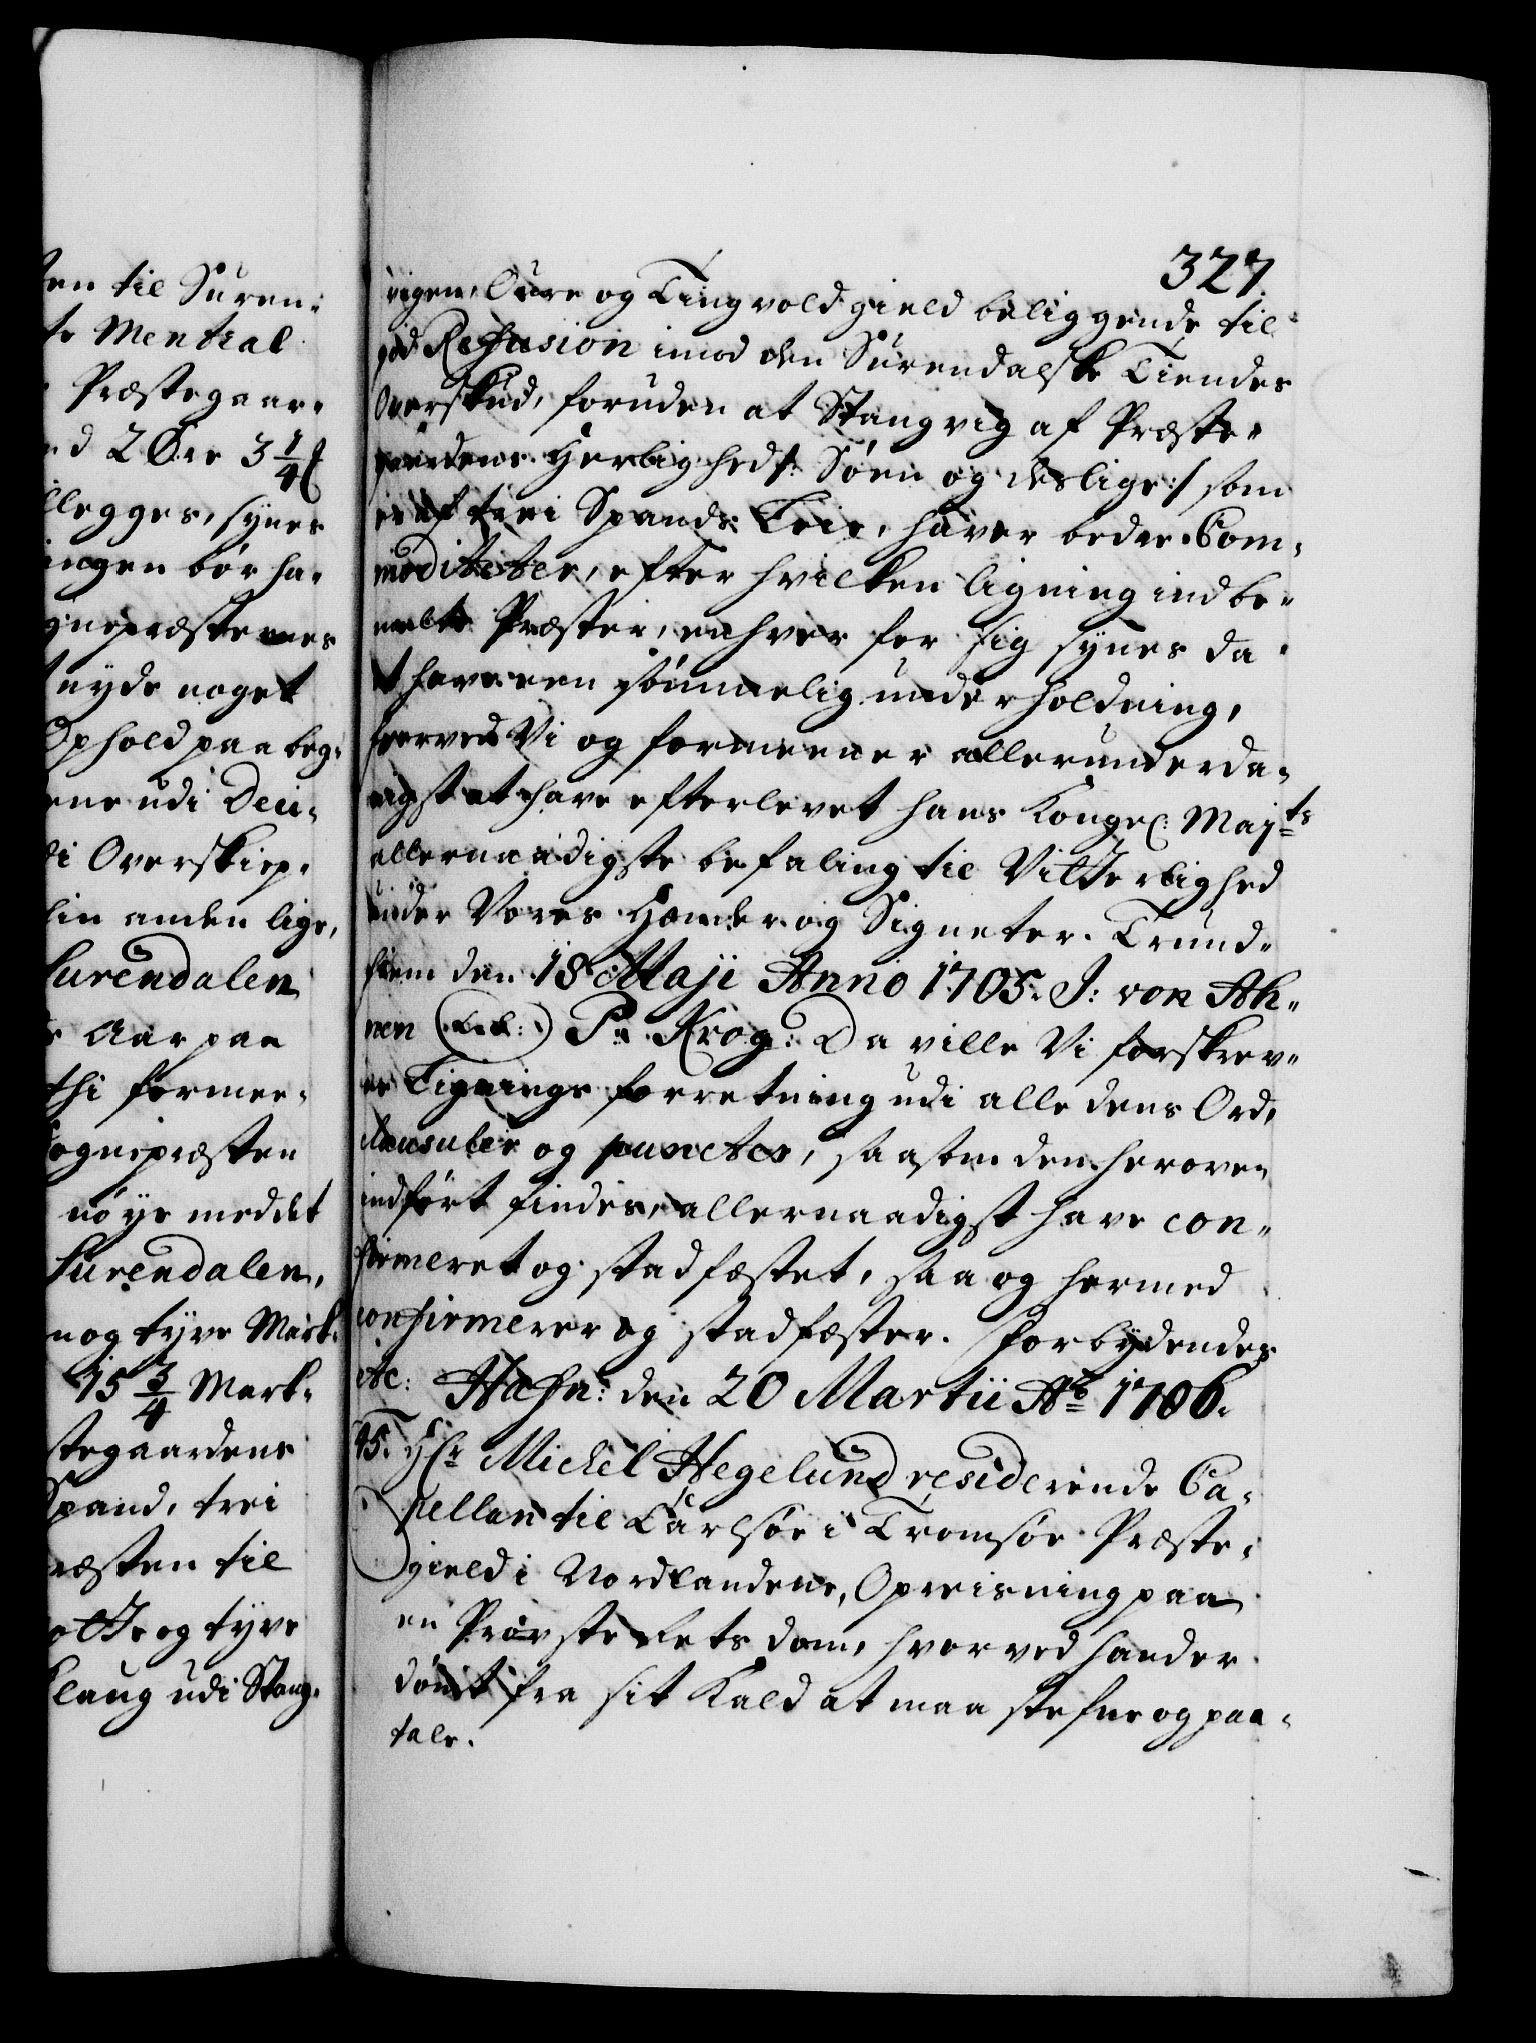 ten til Suren¬
te Mentral
Præstegaar¬
nd 2 Øre 3 1/4
llegges, synes
ingen bør ha¬
gnepræsternes
nyde noget
Ophold paa beg¬
ene udi Deci¬
di Overskiep¬
hin anden lige,
Surendalen
Aar paa
thi formee¬
Sognepræsten
nøye meddet
Surendalen,
nog tyve Mark
15 3/4 Mark¬
stegaardens
Spand, trei
ræsten til
otte og tyve
laug udi Stang¬
327.
vigen, Oure og Tingvold gield beliggende til
god Refusion imod den Surendalske Tiendes
Overskud, foruden at Stangvig af Præste¬
gaardens Herlighed /: Søen og deslige :/ som
er af trei Spands Leie, haver bedre Com¬
moditeter, efter hvilken ligning indbe¬
melte Præster, enhver for sig synes da
at have een sømmelig underholdning,
hvorved Vi og formeener allerunderda¬
nigst at have efterlevet hans Kongel: Majts
allernaadigste befaling til Vitterlighed
under Vores Hænder og Signeter. Trund¬
hiem den 18 Maji Anno 1705. J: von Ah¬
nen (L.S:) P. Krog: Da ville Vi forskrev¬
ne Lignings forretning udi alle dens Ord,
clausuler og puncter, saasom den herover
indført findes, allernaadigst have con¬
firmeret og stadfæstet, saa og hermed
confirmerer og stadfæster. Forbydendes
etc: Hafn: den 20 Martii Ao 1706.
45. Hr Michel Hegelund residerende Ca¬
pellan til Carlsøe i Tromsøe Præste¬
gield i Nordlandene, Opreisning paa
en Provste Rets dom, hvorved hand er
dømt fra sit Kald at maa stefne og paa¬
tale.